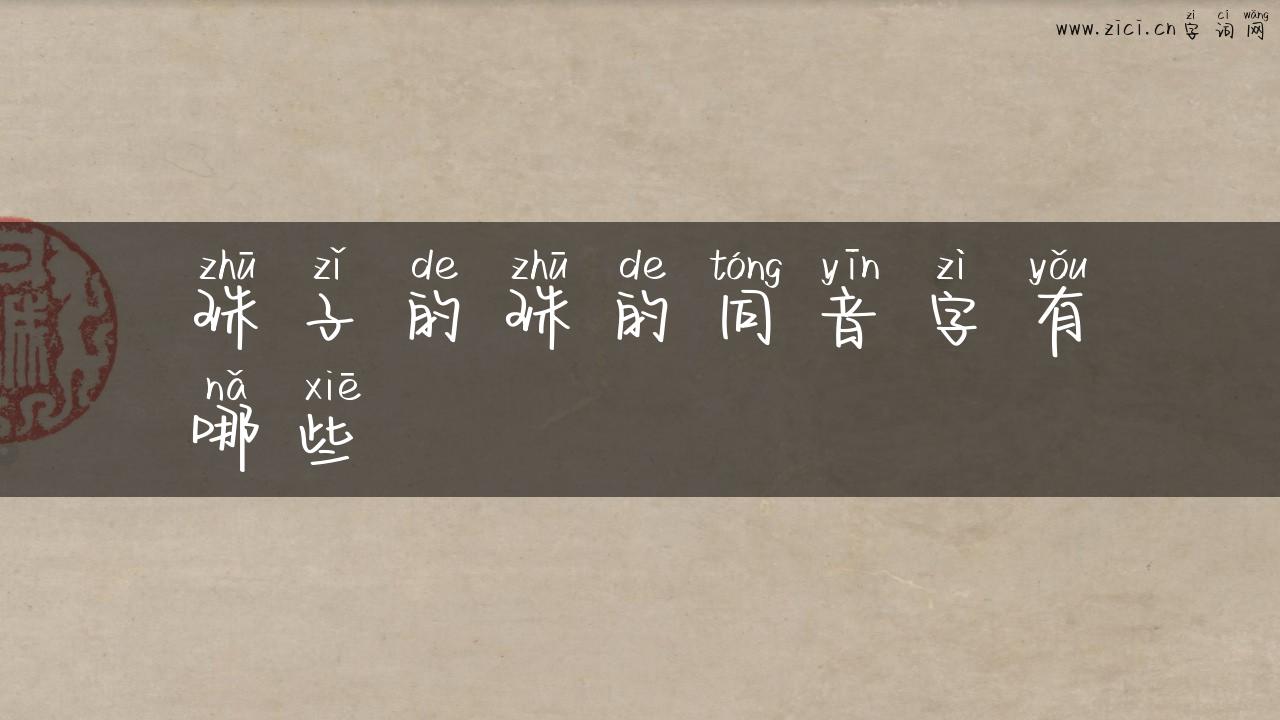 www.zici.cn 字词网
zì cí wǎng
zhū zǐ de zhū de tóng yīn zì yǒu
珠子的珠的同音字有
nǎ xiē
哪些